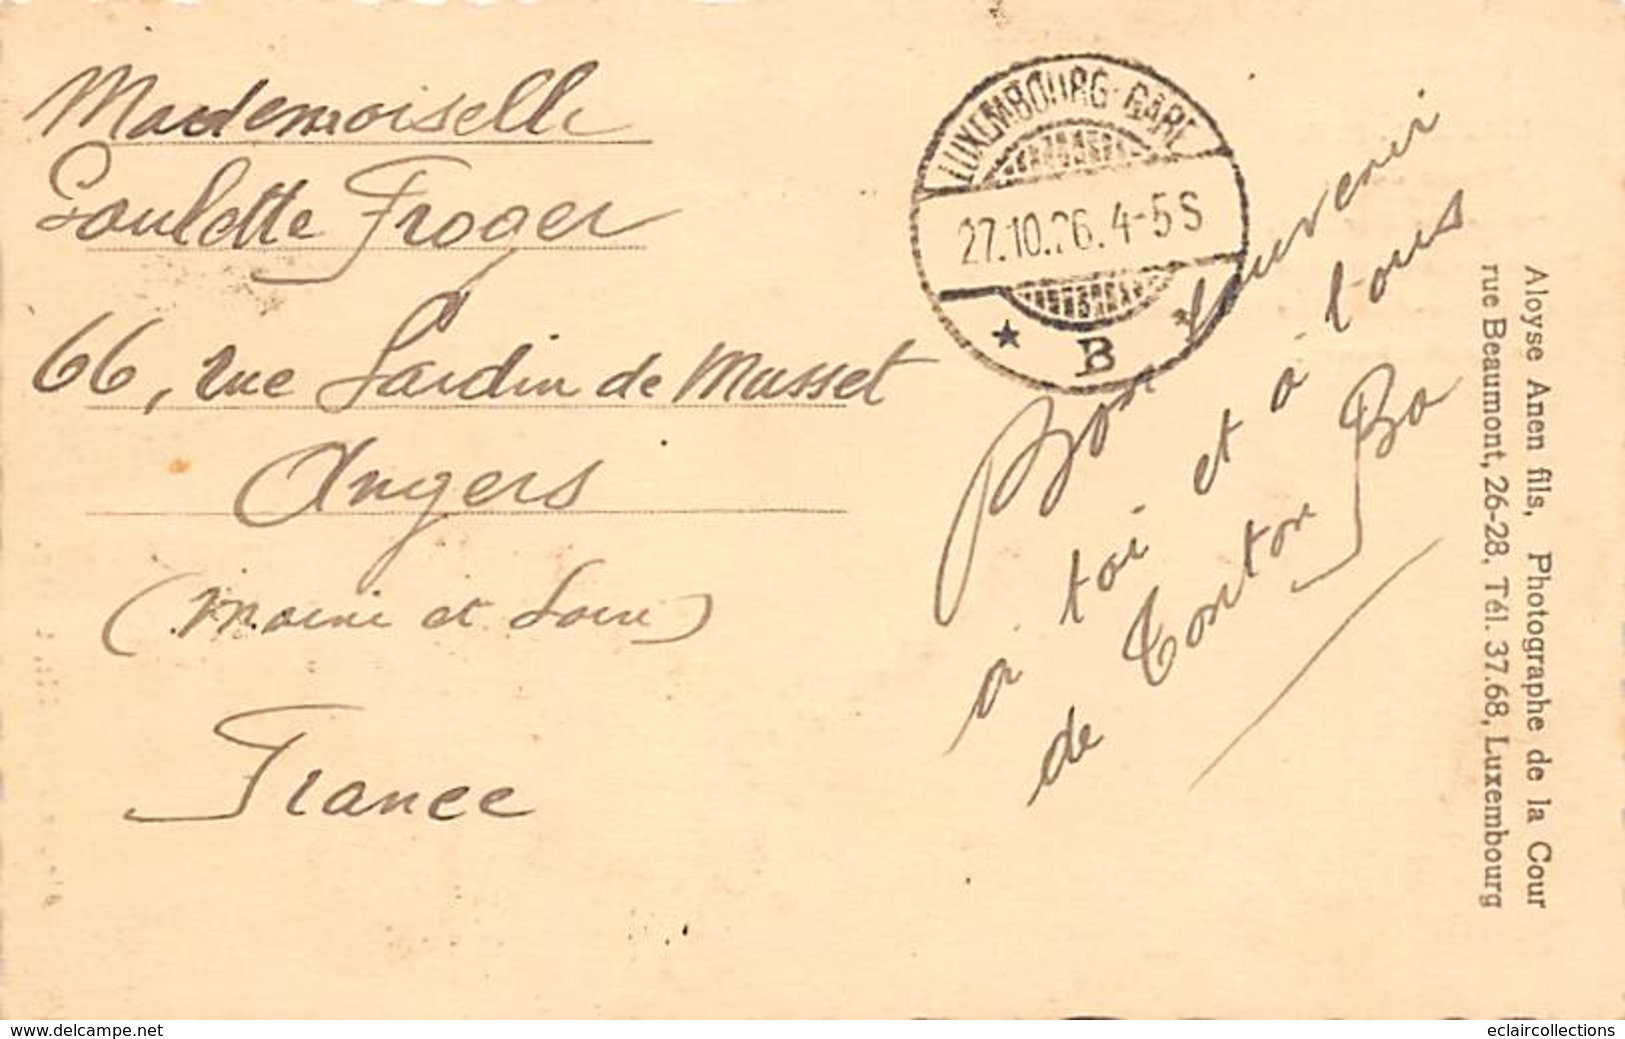 Mademoiselle
Paulette Froger
66, rue Jardin de Musset
Angers
(Maine et Loire)
France
LUXEMBOURG-GARE
27.10.26. 4-5 S
B
Bon souvenir
à toi et à tous
de Tonton Bo
Aloyse Anen fils, Photographe de la Cour
rue Beaumont, 26-28, Tél. 37.68, Luxembourg
www.delcampe.net
eclaircollections